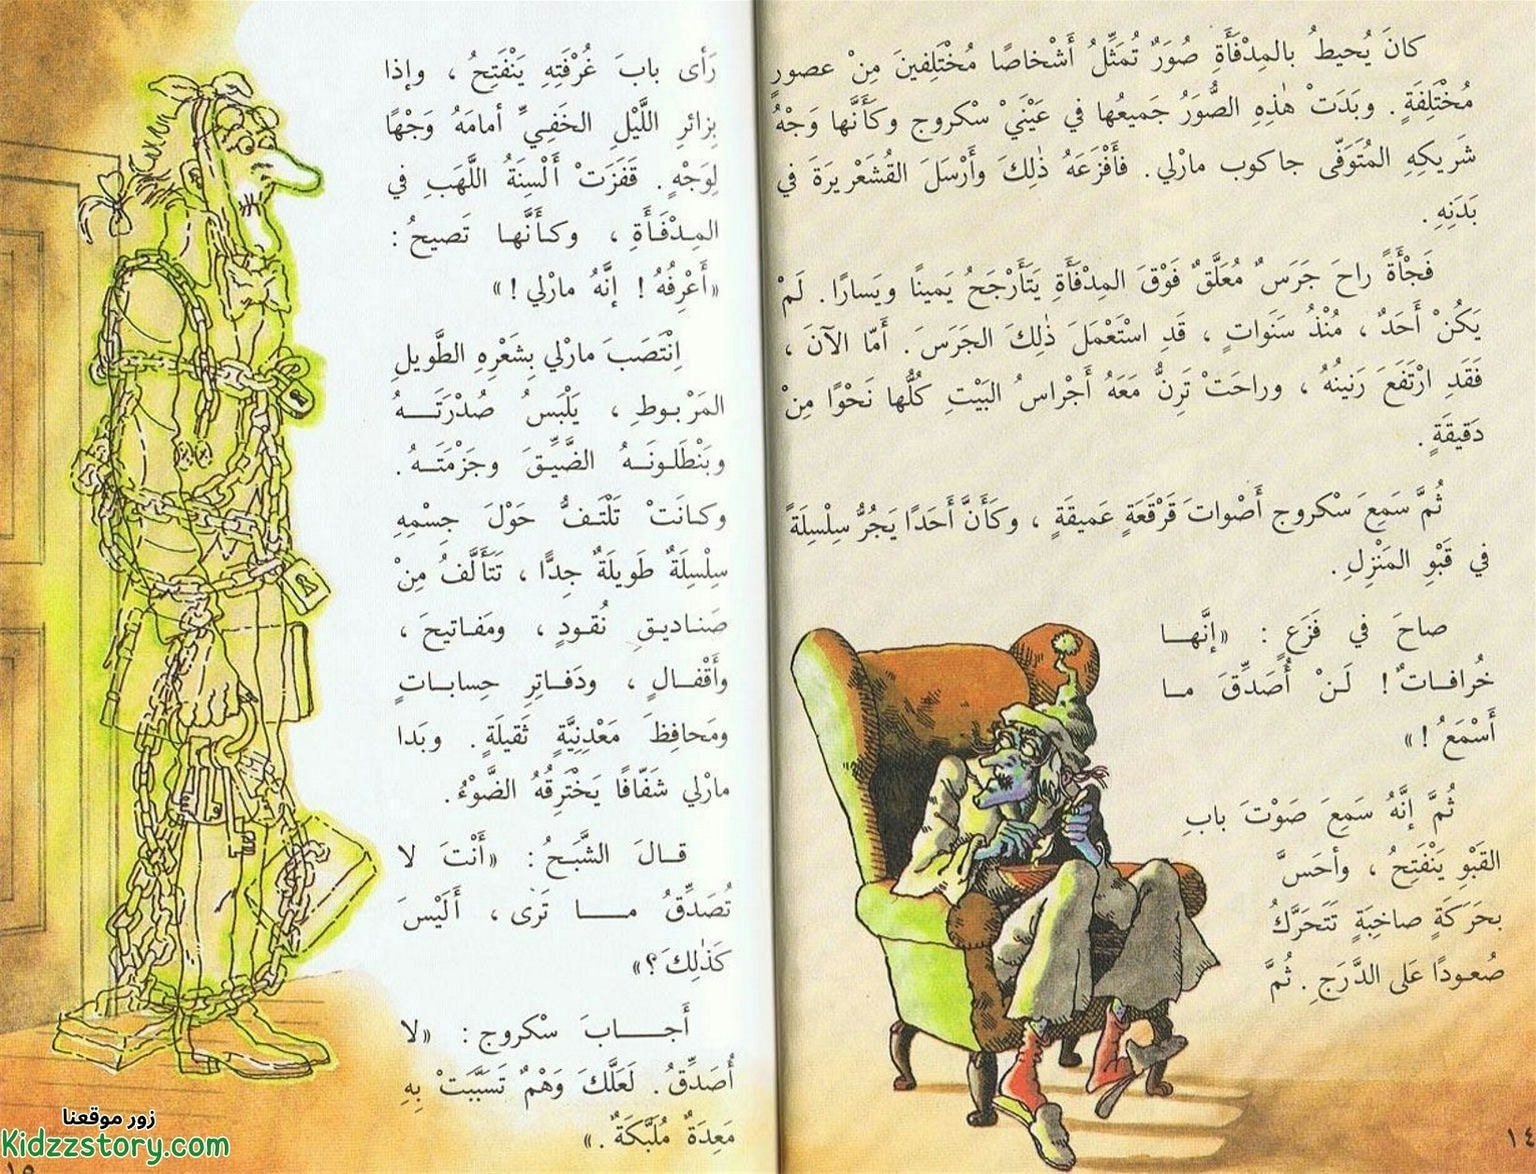 كانَ يُحيطُ بالمِدْفَأَةِ صُوَرٌ تُمَثِّلُ أَشْخاصًا مُخْتَلِفينَ مِنْ عصورٍ
مُخْتَلِفَةٍ. وبَدَتْ هٰذِهِ الصُّوَرُ جَميعُها في عَيْنَيْ سْكروج وكَأَنَّها وَجْهُ
شَريكِهِ المُتَوَفّى جاكوب مارْلي. فأَفْزَعَهُ ذٰلِكَ وأَرْسَلَ القُشَعْريرَةَ في
بَدَنِهِ.
فَجْأَةً راحَ جَرَسٌ مُعَلَّقٌ فَوْقَ المِدْفَأَةِ يَتَأَرْجَحُ يَمينًا ويَسارًا. لَمْ
يَكُنْ أَحَدٌ، مُنْذُ سَنَواتٍ، قَدِ اسْتَعْمَلَ ذٰلِكَ الجَرَسَ. أَمّا الآنَ،
فَقَدِ ارْتَفَعَ رَنينُهُ، وراحَتْ تَرِنُّ مَعَهُ أَجْراسُ البَيْتِ كُلُّها نَحْوًا مِنْ
دَقيقَةٍ.
ثُمَّ سَمِعَ سْكروج أَصْواتَ قَرْقَعَةٍ عَميقَةٍ، وكَأَنَّ أَحَدًا يَجُرُّ سِلْسِلَةً
في قَبْوِ المَنْزِلِ.
صاحَ في فَزَعٍ: «إنَّها
خُرافاتٌ! لَنْ أُصَدِّقَ ما
أَسْمَعُ!»
ثُمَّ إنَّهُ سَمِعَ صَوْتَ بابِ
القَبْوِ يَنْفَتِحُ، وأحَسَّ
بحَرَكَةٍ صاخِبَةٍ تَتَحَرَّكُ
صُعودًا عَلى الدَّرَجِ. ثُمَّ
١٤
رَأى بابَ غُرْفَتِهِ يَنْفَتِحُ، وإذا
بِزائرِ اللَّيْلِ الخَفِيِّ أمامَهُ وَجْهًا
لِوَجْهٍ. قَفَزَتْ أَلْسِنَةُ اللَّهَبِ في
المِدْفَأَةِ، وكأَنَّها تَصيحُ:
«أَعْرِفُهُ! إنَّهُ مارْلي!»
اِنْتَصَبَ مارْلي بِشَعْرِهِ الطَّويلِ
المَرْبوطِ، يَلْبَسُ صُدْرَتَهُ
وبَنْطَلونَهُ الضَّيِّقَ وجَزْمَتَهُ.
وكانَتْ تَلْتَفُّ حَوْلَ جِسْمِهِ
سِلْسِلَةٌ طَويلَةٌ جِدًّا، تَتَأَلَّفُ مِنْ
صَناديقِ نُقودٍ، ومَفاتيحَ،
وأَقْفالٍ، ودَفاتِرِ حِساباتٍ
ومَحافِظَ مَعْدِنِيَّةٍ ثَقيلَةٍ. وبَدا
مارْلي شَفّافًا يَخْتَرِقُهُ الضَّوْءُ.
قالَ الشَّبَحُ: «أَنْتَ لا
تُصَدِّقُ ما تَرى، أَلَيْسَ
كَذٰلِكَ؟»
أَجابَ سْكروج: «لا
أُصَدِّقُ. لَعَلَّكَ وَهْمٌ تَسَبَّبَتْ بِهِ
مَعِدَةٌ مُلَبَّكَةٌ.»
زور موقعنا
Kidzzstory.com
١٥